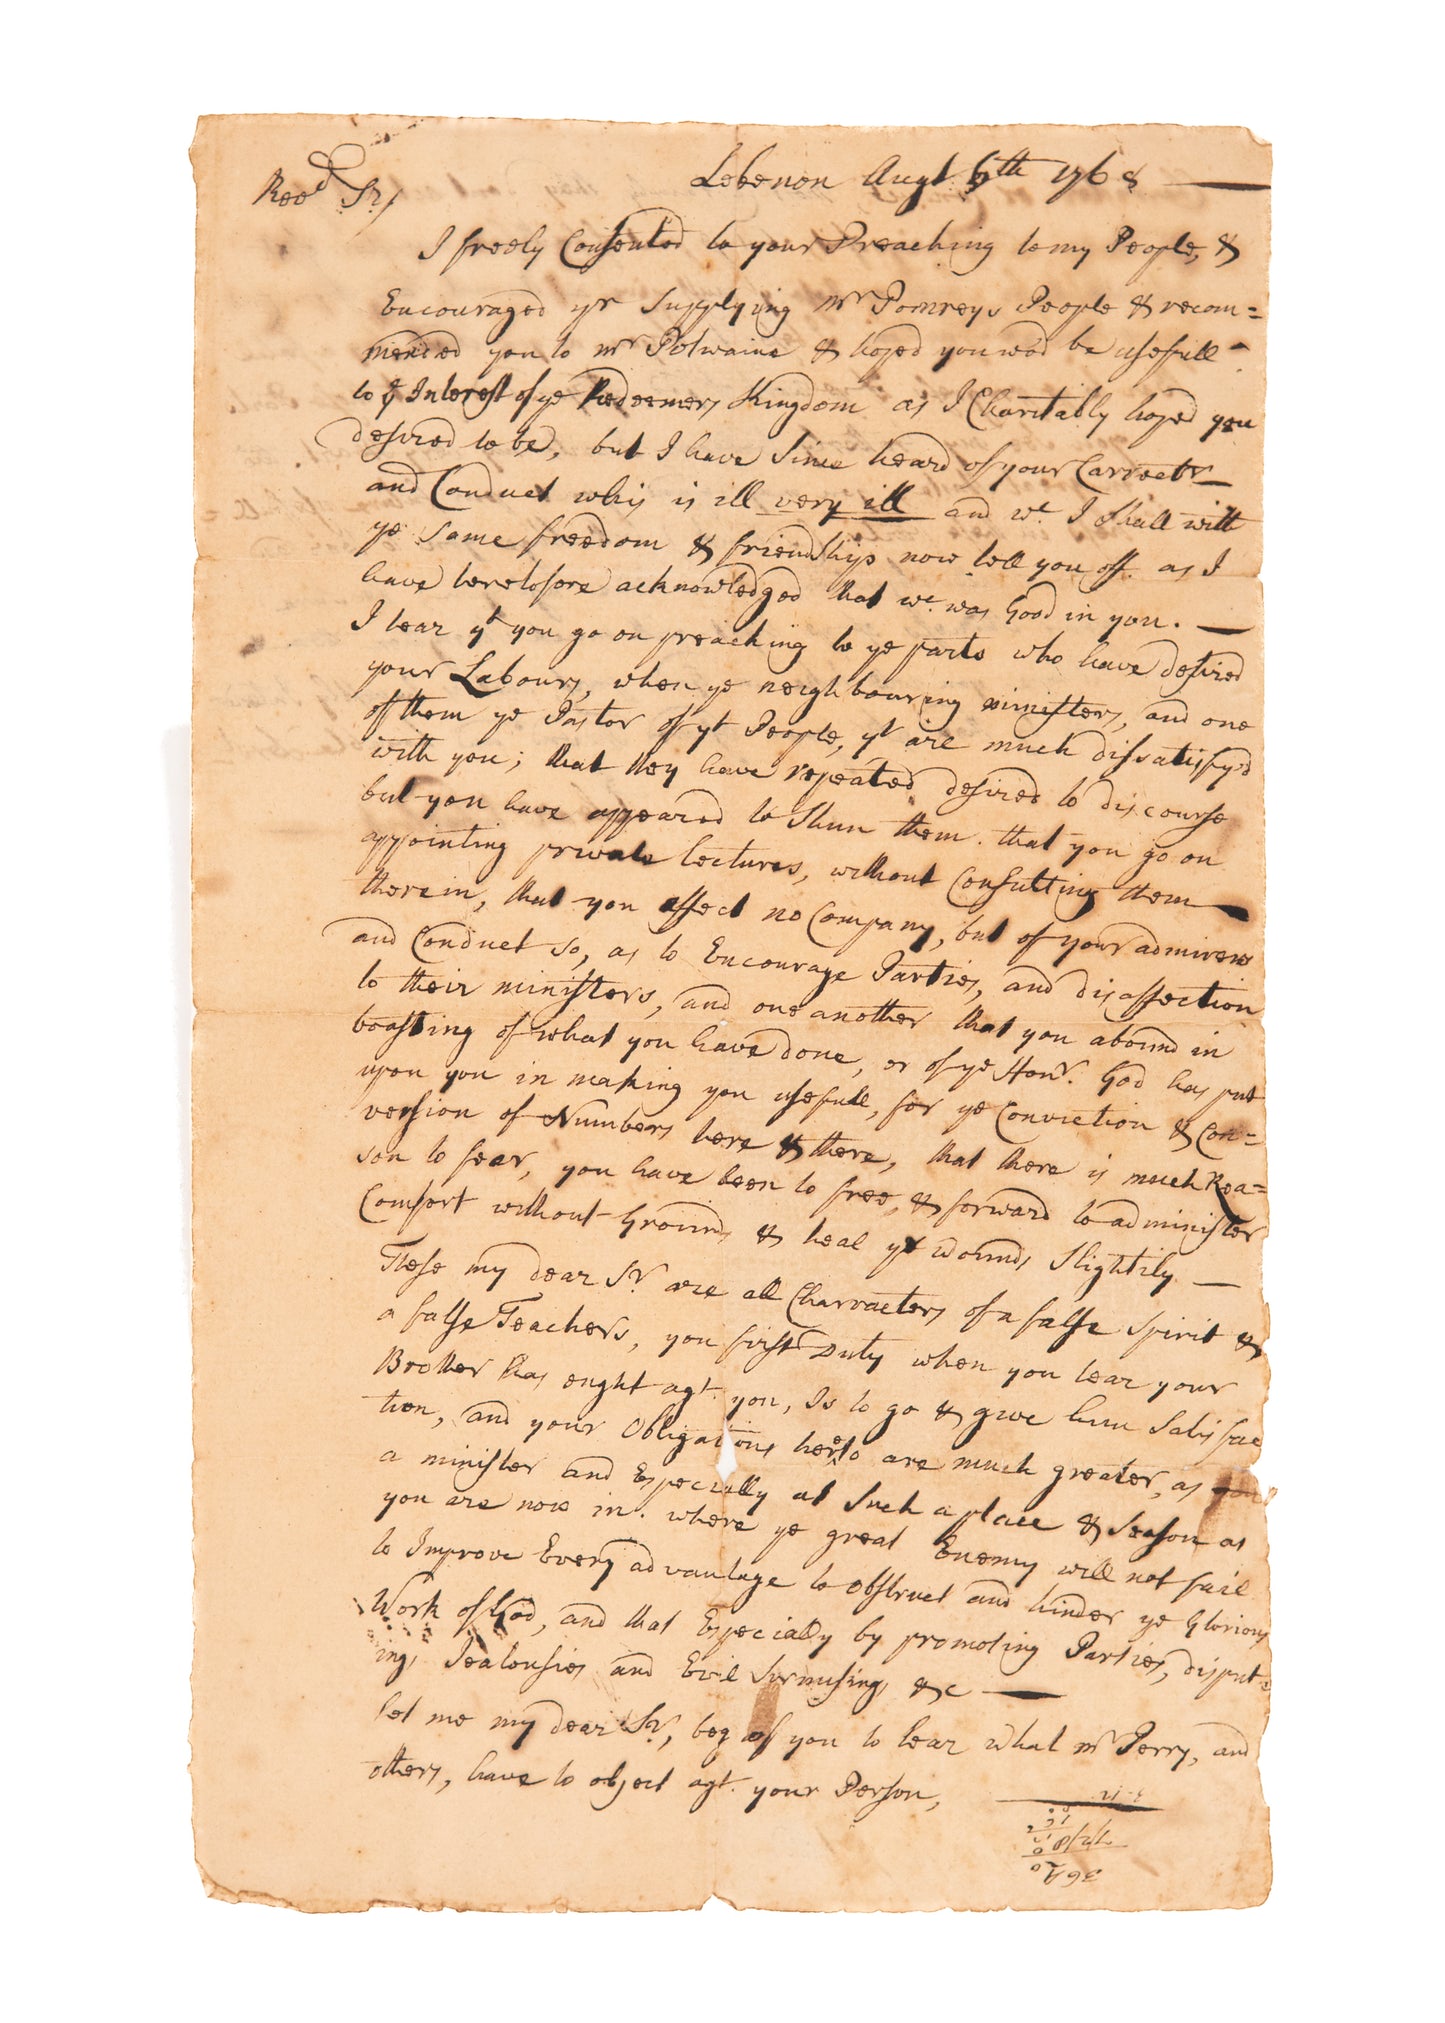 Lebenon Augt. 6th 1768
Revd Sr,
I freely Consented to your Preaching to my People, &
Encouraged yr Supplying mr Pomroys People & recom=
mended you to mr & hoped you wod be usefull
to ye Interest of ye Redeemers Kingdom as I Charitably hoped you
desired to be, but I have Since heard of your Carrectr
and Conduct whis is ill very ill and wt. I Shall with
ye same freedom & friendship now tell you off. as I
have heretofore acknowledged that wt. was Good in you.
I hear yt you go on preaching to ye parts who have desired
your Labours, when ye neighbouring ministers, and one
of them ye Pastor of yt People, yt are much dissatisfyd
with you; that they have repeated desired to discourse
but you have appeared to Shun them. that you go on
appointing private lectures, without Consulting them
therein, that you affect no Company, but of your admirers
and Conduct so, as to Encourage Parties, and disaffection
to their ministers, and one another that you abound in
boasting of what you have done, or of ye Honr. God has put
upon you in making you usefull, for ye Conviction & Con=
version of Numbers here & there, that there is much Rea=
son to fear, you have been to free, & forward to administer
Comfort without Ground, & heal ye wounds Slightily
These my dear Sr. are all Charracters of a false Spirit &
a false Teachers, you first Duty when you hear your
Brother has ought agt. you, Is to go & give him Satisfac
tion, and your Obligations hereto are much greater, as
a minister and Especially at Such a place & Season as
you are now in. where ye great Enemy will not fail
to Improve Every advantage to obstruct and hinder ye Glorious
Work of God, and that Especially by promoting Parties, disput=
ing, Jealousies and Evil Surmising, &c
let me my dear Sr, beg of you to hear what mr Perry, and
others, have to object agt. your Person,